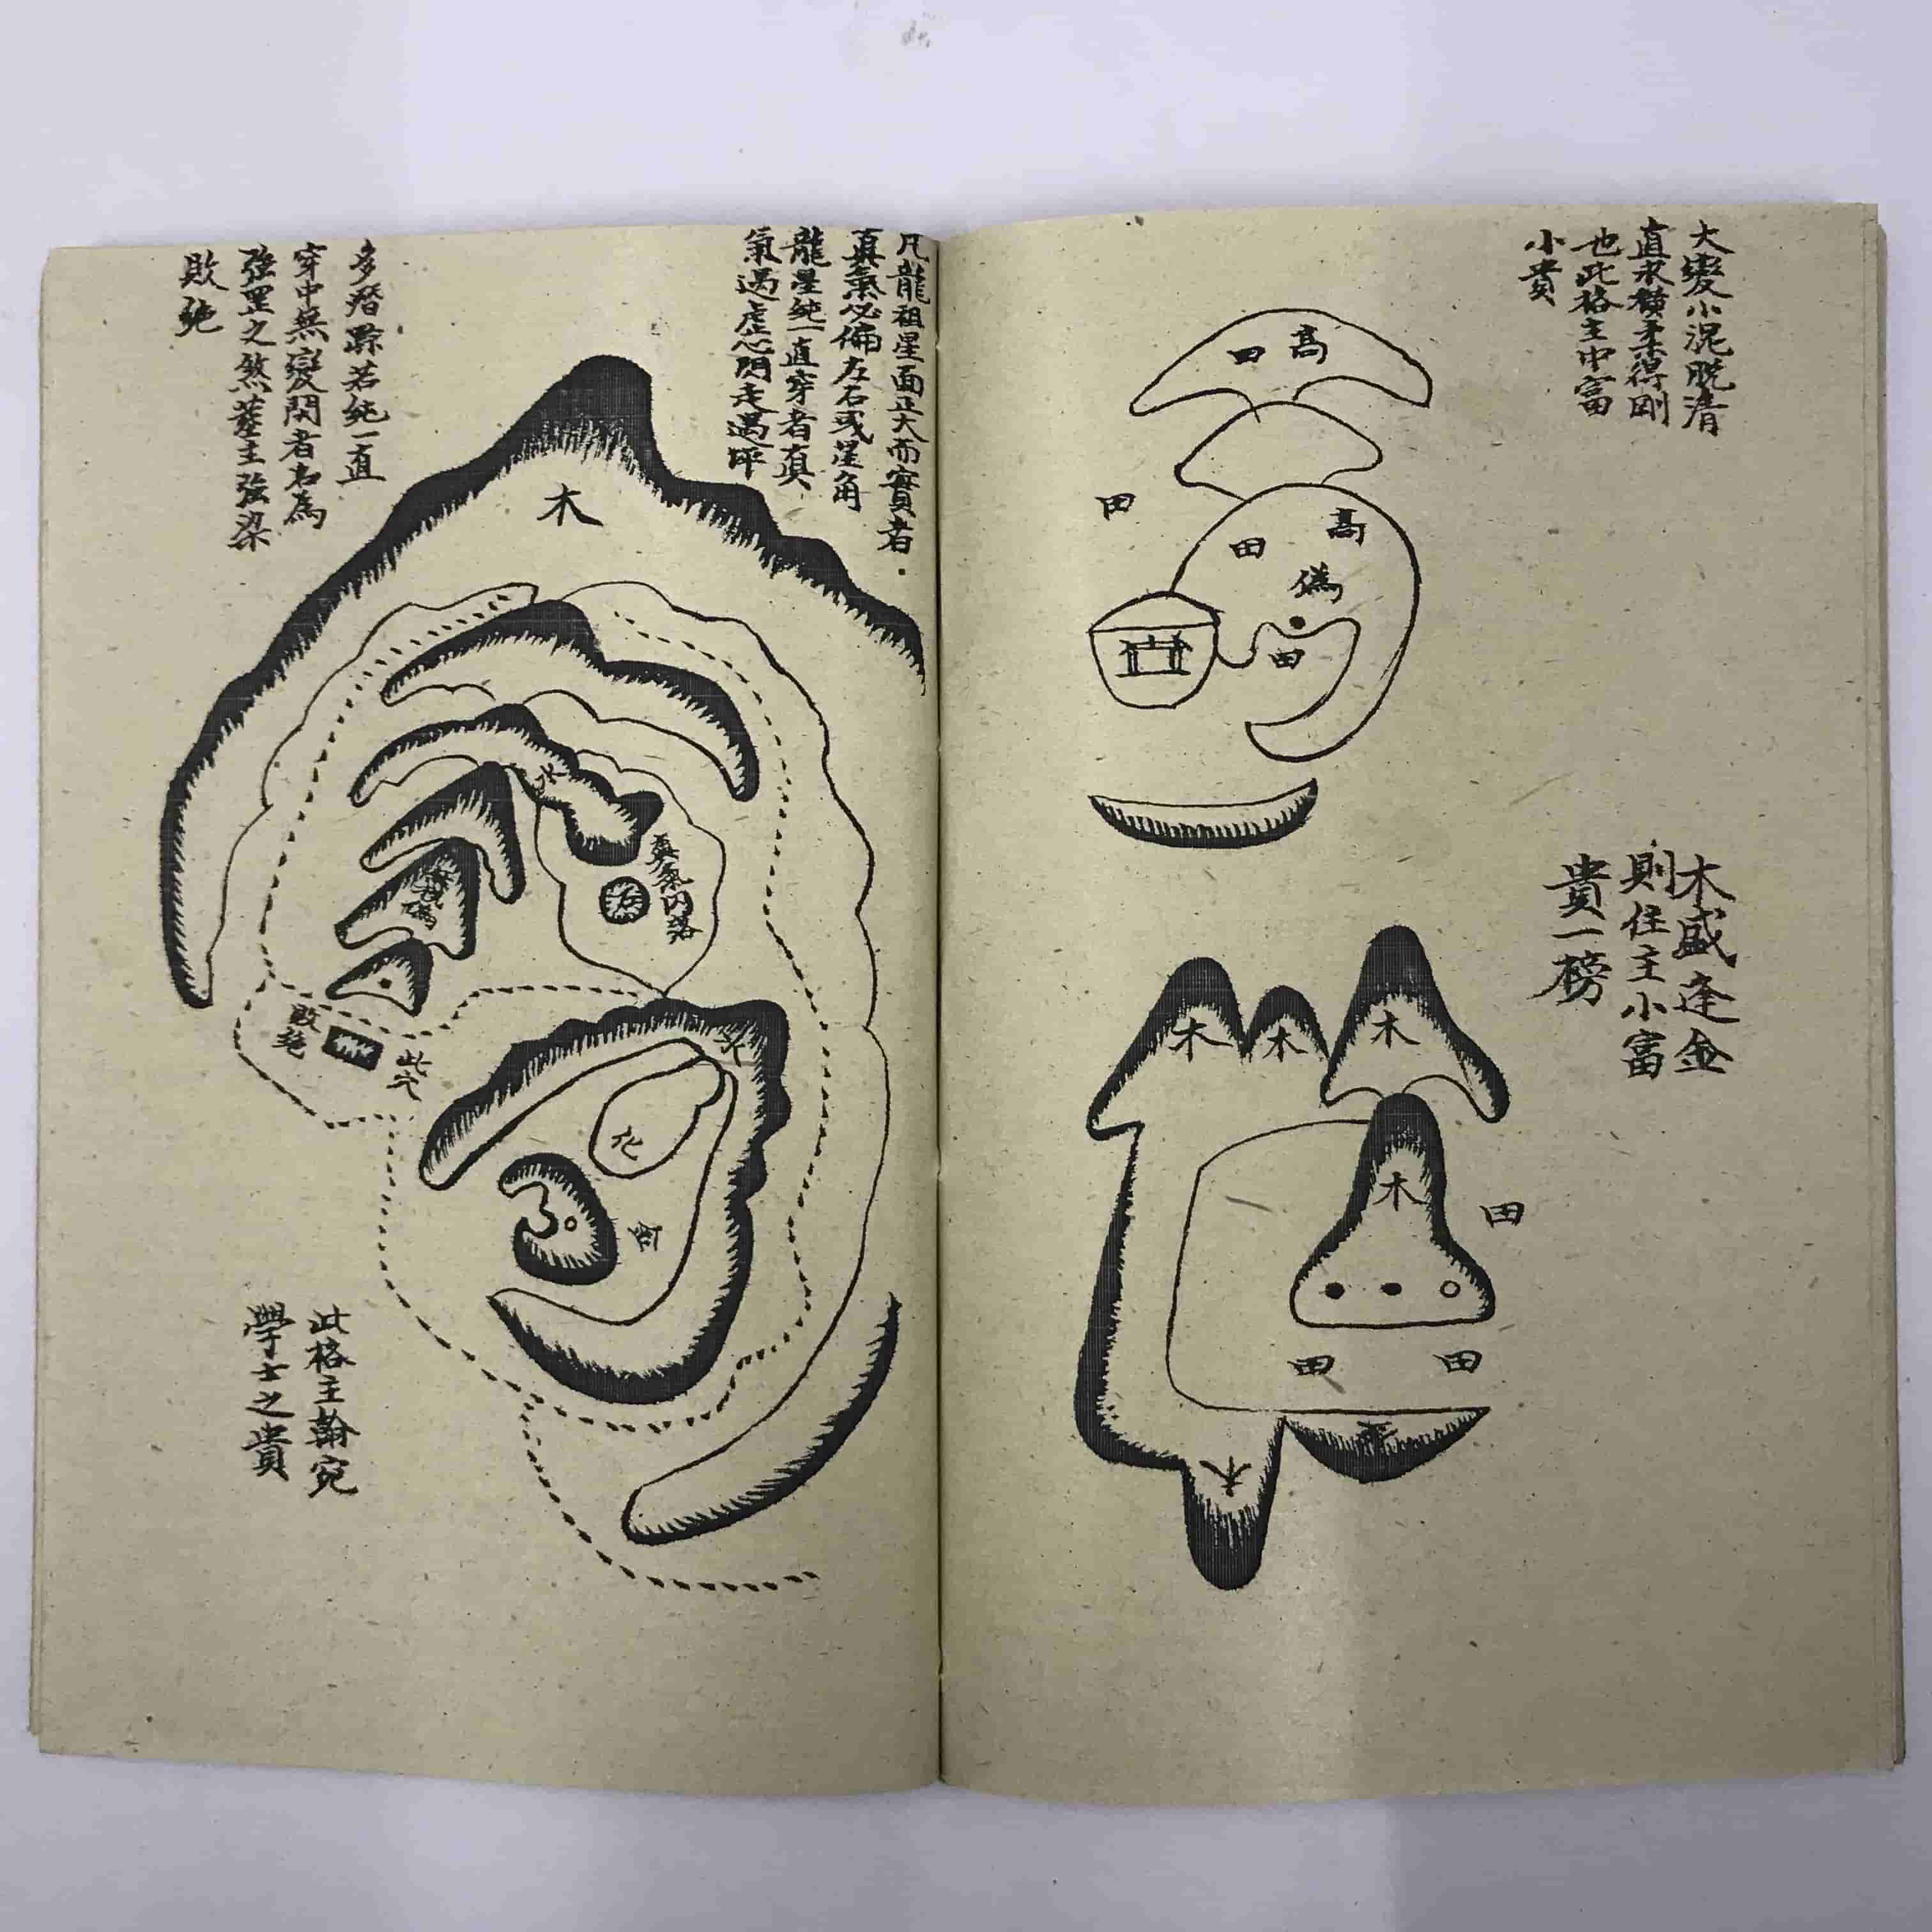 大變小混脫清
直求橫柔得剛
也此格主中富
小貴
高
田
田
高
田
偽
田
木盛逢金
則佳主小富
貴一榜
木
木
木
木
田
田
田
木
凡龍祖星面正大而實者
真氣必偏左右或星角
龍星純一直穿者真
氣過虛心閃走過坪
多潛踪若純一直
穿中無變閃者名為
強罡之煞葬主強梁
敗絕
木
水
真氣內落
化
金
此穴
敗絕
此格主翰宛
學士之貴